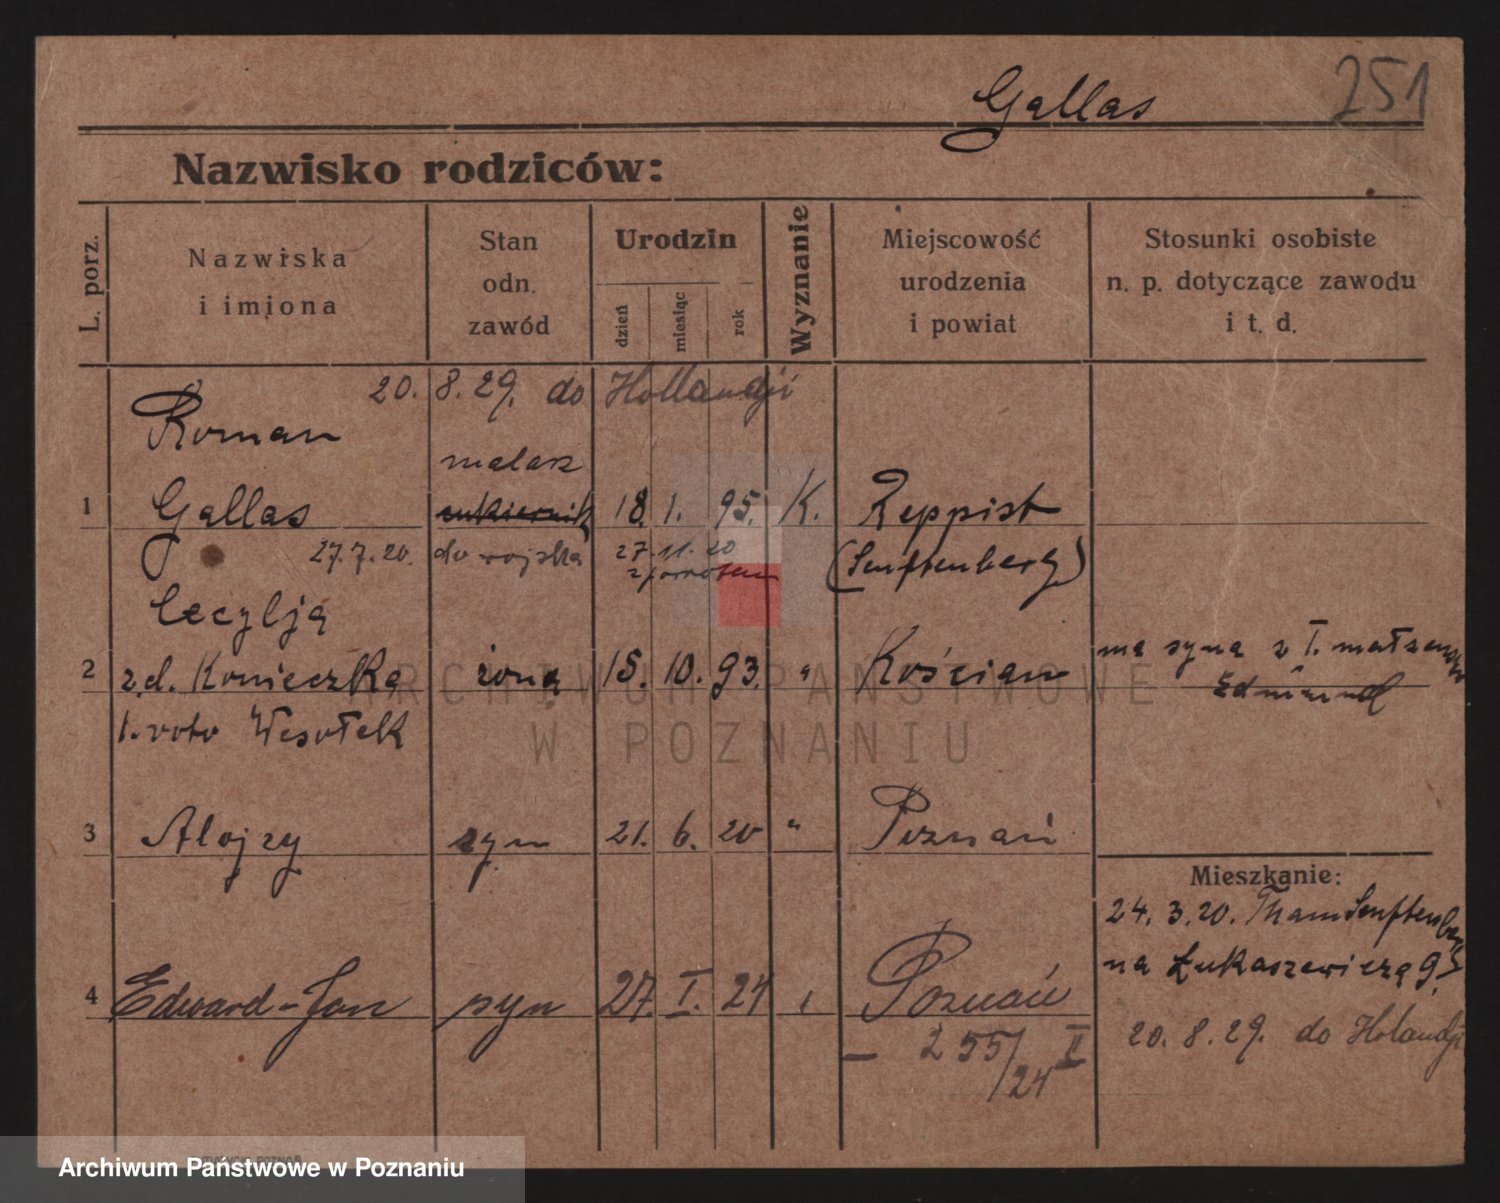 Gallas 251
Nazwisko rodziców:
L. porz.
Nazwiska
i imiona
Stan
odn.
zawód
Urodzin
dzień
miesiąc
rok
Wyznanie
Miejscowość
urodzenia
i powiat
Stosunki osobiste
n. p. dotyczące zawodu
i t. d.
20. 8. 29. do Hollandji
Roman
malarz
1 Gallas cukiernik 18. 1. 95. K. Reppist
27.7.20. do wojska 27.11.20 (Senftenberg)
z powrotem
Cecylją
2 z d. Konieczka żona 15. 10. 93. " Kościan ma syna z I. małżeństwa
Edmund
1. voto Wesołek
3 Alojzy syn 21. 6. 20 " Poznań
Mieszkanie:
24. 3. 20. Tham Senftenberg
na Łukaszewicza 9.
4 Edward-Jan syn 27. I. 24 " Poznań
— 255/24 II
20. 8. 29. do Holandji
ARCHIWUM PAŃSTWOWE
W POZNANIU
Archiwum Państwowe w Poznaniu